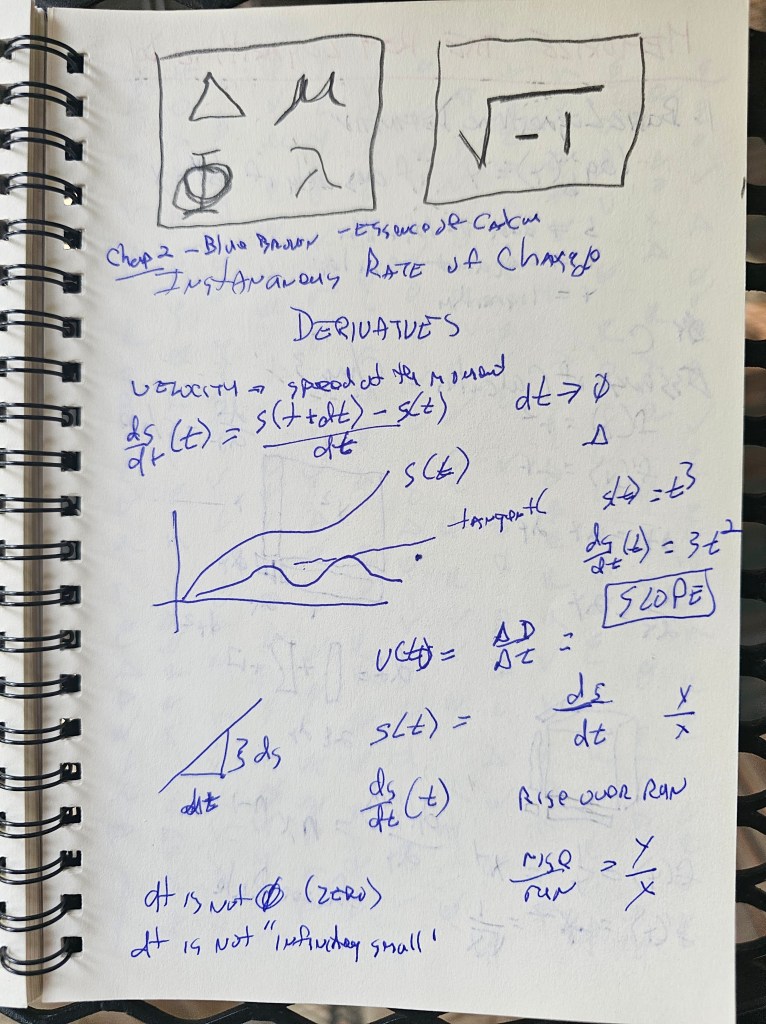 Δ μ
Φ λ
√-1
Chap 2 - Blue Brown - Essence of Calcu
Instananous Rate of Change
DERIVATIVES
VELOCITY → speed at the moment
ds/dt (t) = s(t+dt) - s(t) / dt
dt → 0
Δ
s(t)
tangent
s(t) = t³
ds/dt (t) = 3t²
SLOPE
v(t) = ΔD/Δt =
s(t) = ds/dt
x/x
ds
dt
ds/dt (t)
RISE OVER RUN
rise/run = Y/X
dt is not 0 (ZERO)
dt is not "infinitley small"